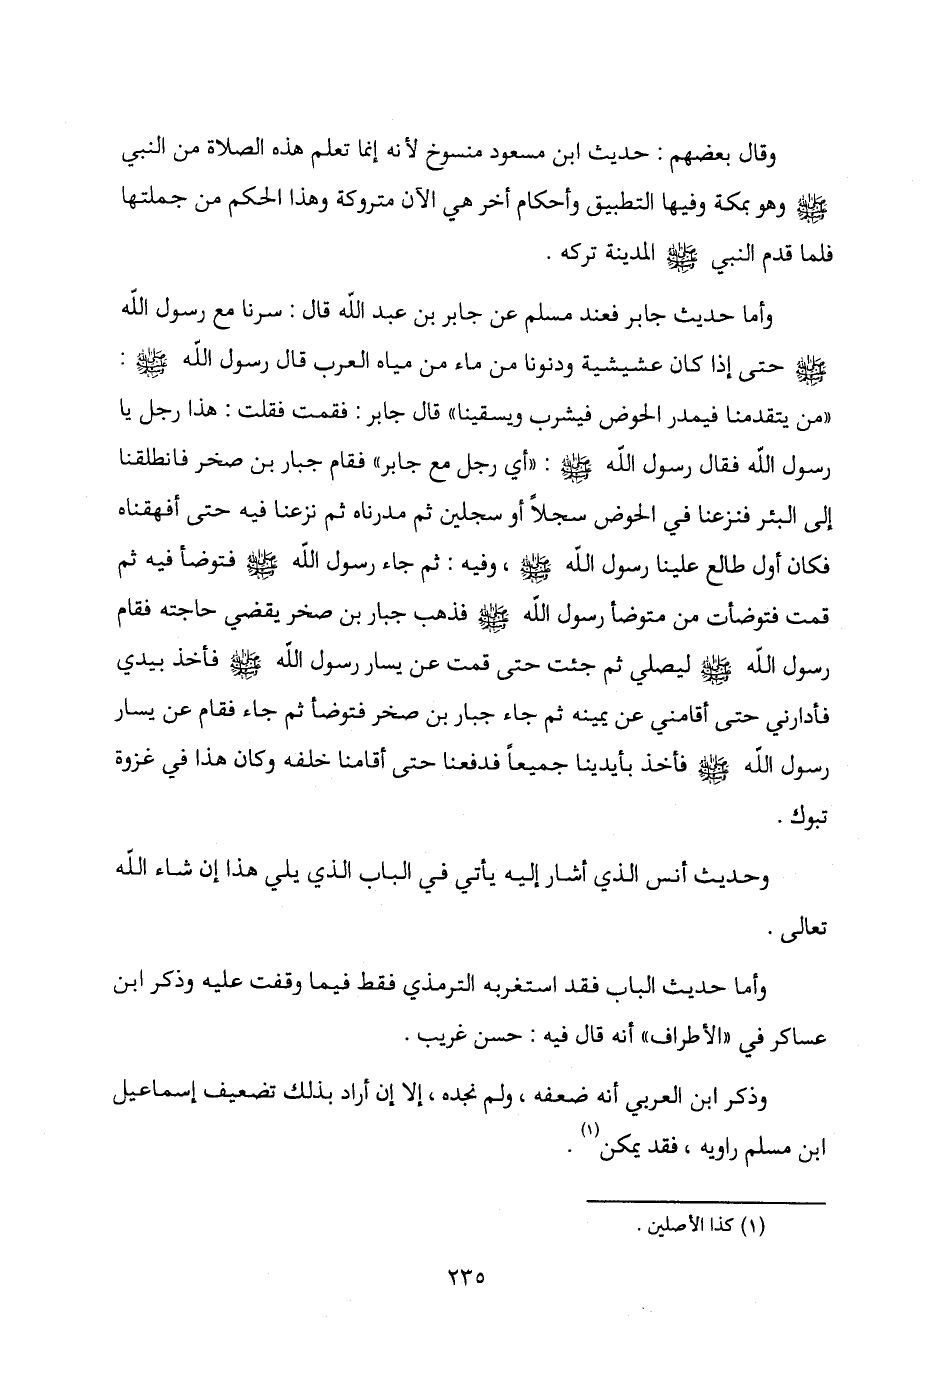 وقال بعضهم : حديث ابن مسعود منسوخ لأنه إنما تعلم هذه الصلاة من النبي
ﷺ وهو بمكة وفيها التطبيق وأحكام أخر هي الآن متروكة وهذا الحكم من جملتها
فلما قدم النبي ﷺ المدينة تركه .
وأما حديث جابر فعند مسلم عن جابر بن عبد اللّه قال : سرنا مع رسول اللّه
ﷺ حتى إذا كان عشيشية ودنونا من ماء من مياه العرب قال رسول اللّه ﷺ :
«من يتقدمنا فيمدر الحوض فيشرب ويسقينا» قال جابر : فقمت فقلت : هذا رجل يا
رسول اللّه فقال رسول اللّه ﷺ : «أي رجل مع جابر» فقام جبار بن صخر فانطلقنا
إلى البئر فنزعنا في الحوض سجلاً أو سجلين ثم مدرناه ثم نزعنا فيه حتى أفهقناه
فكان أول طالع علينا رسول اللّه ﷺ ، وفيه : ثم جاء رسول اللّه ﷺ فتوضأ فيه ثم
قمت فتوضأت من متوضأ رسول اللّه ﷺ فذهب جبار بن صخر يقضي حاجته فقام
رسول اللّه ﷺ ليصلي ثم جئت حتى قمت عن يسار رسول اللّه ﷺ فأخذ بيدي
فأدارني حتى أقامني عن يمينه ثم جاء جبار بن صخر فتوضأ ثم جاء فقام عن يسار
رسول اللّه ﷺ فأخذ بأيدينا جميعاً فدفعنا حتى أقامنا خلفه وكان هذا في غزوة
تبوك .
وحديث أنس الذي أشار إليه يأتي في الباب الذي يلي هذا إن شاء اللّه
تعالى .
وأما حديث الباب فقد استغربه الترمذي فقط فيما وقفت عليه وذكر ابن
عساكر في «الأطراف» أنه قال فيه : حسن غريب .
وذكر ابن العربي أنه ضعفه ، ولم نجده ، إلا إن أراد بذلك تضعيف إسماعيل
ابن مسلم راويه ، فقد يمكن(١) .
(١) كذا الأصلين .
٢٣٥